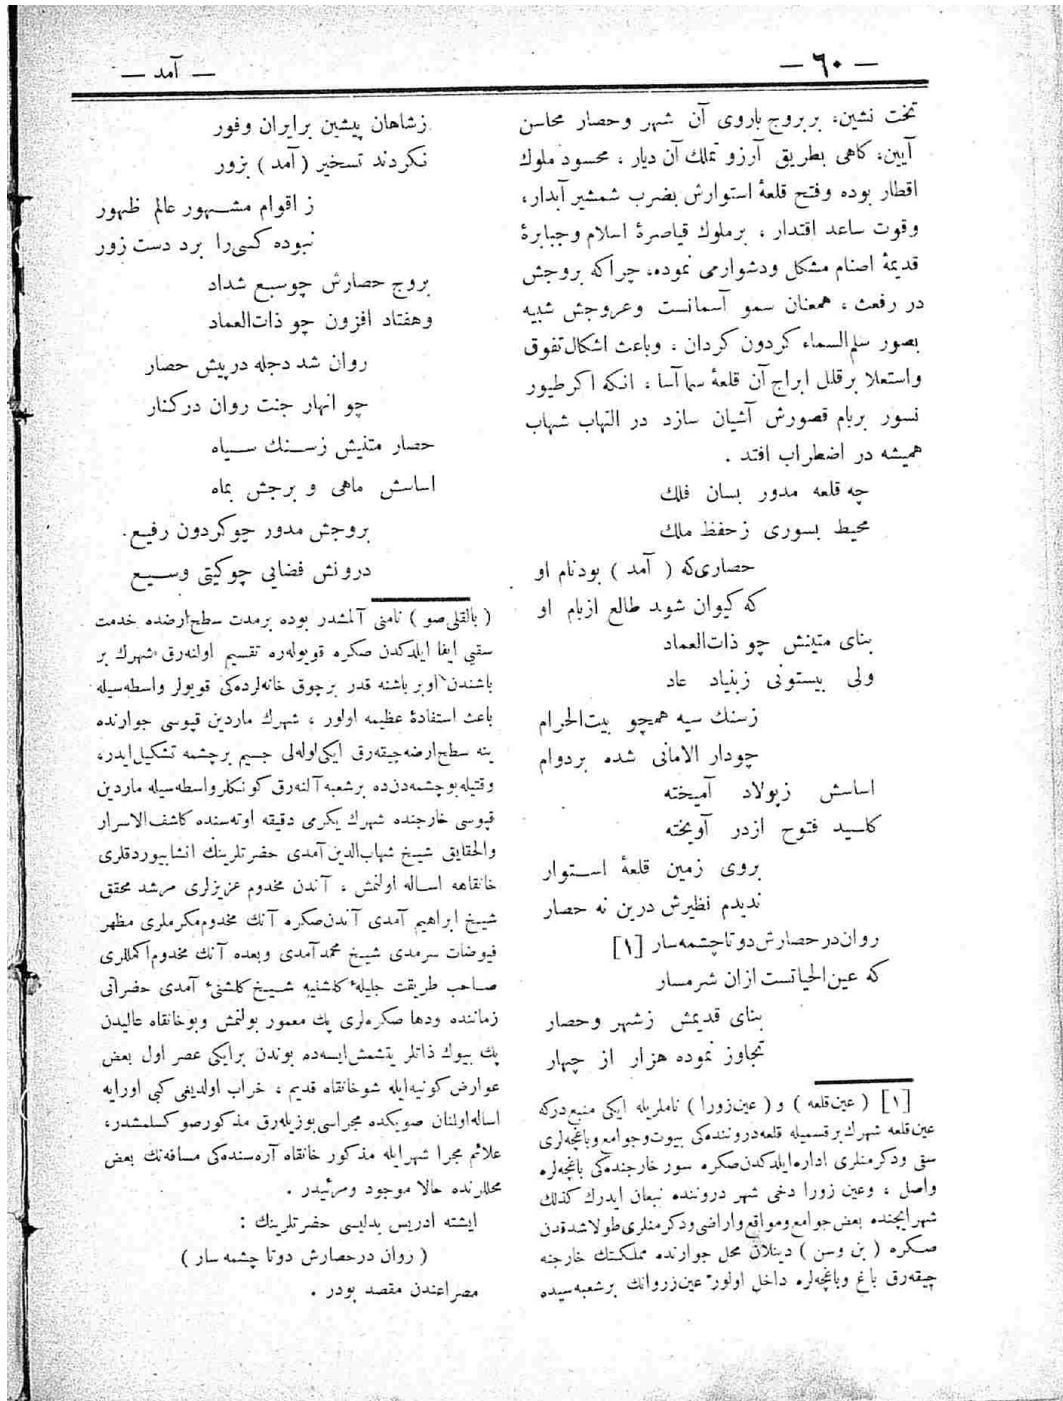 — ٦٠ —
— آمد —
تخت نشین، بربروج باروی آن شهر وحصار محاسن
آیین، کاهی بطریق آرزو تملك آن دیار، محسود ملوك
اقطار بوده وفتح قلعهٔ استوارش بضرب شمشیر آبدار،
وقوت ساعد اقتدار، برملوك قیاصرهٔ اسلام وجبابرهٔ
قدیمهٔ اصنام مشکل ودشوارمی نموده، چراکه بروجش
در رفعت، همعنان سمو آسمانست وعروجش شبیه
بصور سلم‌السماء کردون کردان، وباعث اشکال تفوق
واستعلا برقلل ابراج آن قلعهٔ سما آسا، انکه اکر طیور
نسور بربام قصورش آشیان سازد در التهاب شهاب
همیشه در اضطراب افتد.
چه قلعه مدور بسان فلك
محیط بسوری زحفظ ملك
حصاری‌که ( آمد ) بودنام او
که کیوان شود طالع ازبام او
بنای متینش چو ذات‌العماد
ولی بیستونی زبنیاد عاد
زسنك سیه همچو بیت‌الحرام
چودار الامانی شده بردوام
اساسش زپولاد آمیخته
کاسید فتوح ازدر آویخته
بروی زمین قلعهٔ استوار
ندیدم نظیرش درین نه حصار
روان‌درحصارش دوتاچشمه‌سار [۱]
که عین‌الحیاتست ازان شرمسار
بنای قدیمش زشهر وحصار
تجاوز نموده هزار از چهار
[۱] ( عین قلعه ) و ( عین زورا ) ناملریله ایکی منبع درکه
عین قلعه شهرك برقسمیله قلعه‌دروننده‌کی بیوت وجوامع وباغچه‌لری
سقی ودکرمنلری اداره‌ایلدکدن‌صکره سور خارجنده‌کی باغچه‌لره
واصل، وعین زورا دخی شهر دروننده نبعان ایدرك کذلك
شهرایچنده بعض جوامع ومواقع واراضی ودکرمنلری‌طولاشدقدن
صکره ( بن وسن ) دینلان محل جوارنده مملکتك خارجنه
چیقه‌رق باغ وباغچه‌لره داخل اولور. عین زروانك برشعبه‌سیده
زشاهان پیشین برایران وفور
نکردند تسخیر ( آمد ) بزور
ز اقوام مشهور عالم ظهور
نبوده کسی‌را برد دست زور
بروج حصارش چوسبع شداد
وهفتاد افزون چو ذات‌العماد
روان شد دجله درپیش حصار
چو انهار جنت روان درکنار
حصار متنیش زسنك سیاه
اساسش ماهی و برجش بماه
بروجش مدور چوکردون رفیع.
درونش فضایی چوکیتی وسیع
( بالقلی‌صو ) نامنی آلمشدر بوده برمدت سطح‌ارضده خدمت
سقیی ایفا ایلدکدن صکره قویوله‌ره تقسیم اولنه‌رق شهرك بر
باشندن اوبر باشنه قدر برچوق خانه‌لرده‌کی قویولر واسطه‌سیله
باعث استفادهٔ عظیمه اولور، شهرك ماردین قپوسی جوارنده
ینه سطح‌ارضه‌چیقه‌رق ایکی‌لوله‌لی جسیم برچشمه تشکیل‌ایدر،
وقتیله‌بوچشمه‌دن‌ده برشعبه آلنه‌رق کونکلر واسطه‌سیله ماردین
قپوسی خارجنده شهرك یکرمی دقیقه اوته‌سنده کاشف‌الاسرار
والحقایق شیخ شهاب‌الدین آمدی حضرتلرینك انشابیوردقلری
خانقاهه اساله اولنمش، آندن مخدوم عزیزلری مرشد محقق
شیخ ابراهیم آمدی آندن‌صکره آنك مخدوم‌مکرملری مظهر
فیوضات سرمدی شیخ محمدآمدی وبعده آنك مخدوم‌اکمللری
صاحب طریقت جلیلهٔ کلشنیه شیخ کلشنیٔ آمدی حضراتی
زماننده ودها صکره‌لری پك معمور بولنمش وبوخانقاه عالیدن
پك بیوك ذاتلر یتشمش‌ایسه‌ده بوندن برایکی عصر اول بعض
عوارض کونیه‌ایله شوخانقاه قدیم، خراب اولدیغی کبی اورایه
اساله‌اولنان صویکده مجراسی‌بوزیله‌رق مذکورصو کسلمشدر،
علائم مجرا شهرایله مذکور خانقاه آره‌سنده‌کی مسافه‌نك بعض
محللرنده حالا موجود ومرئیدر.
ایشته ادریس بدلیسی حضرتلرینك :
( روان درحصارش دوتا چشمه سار )
مصراعندن مقصد بودر.